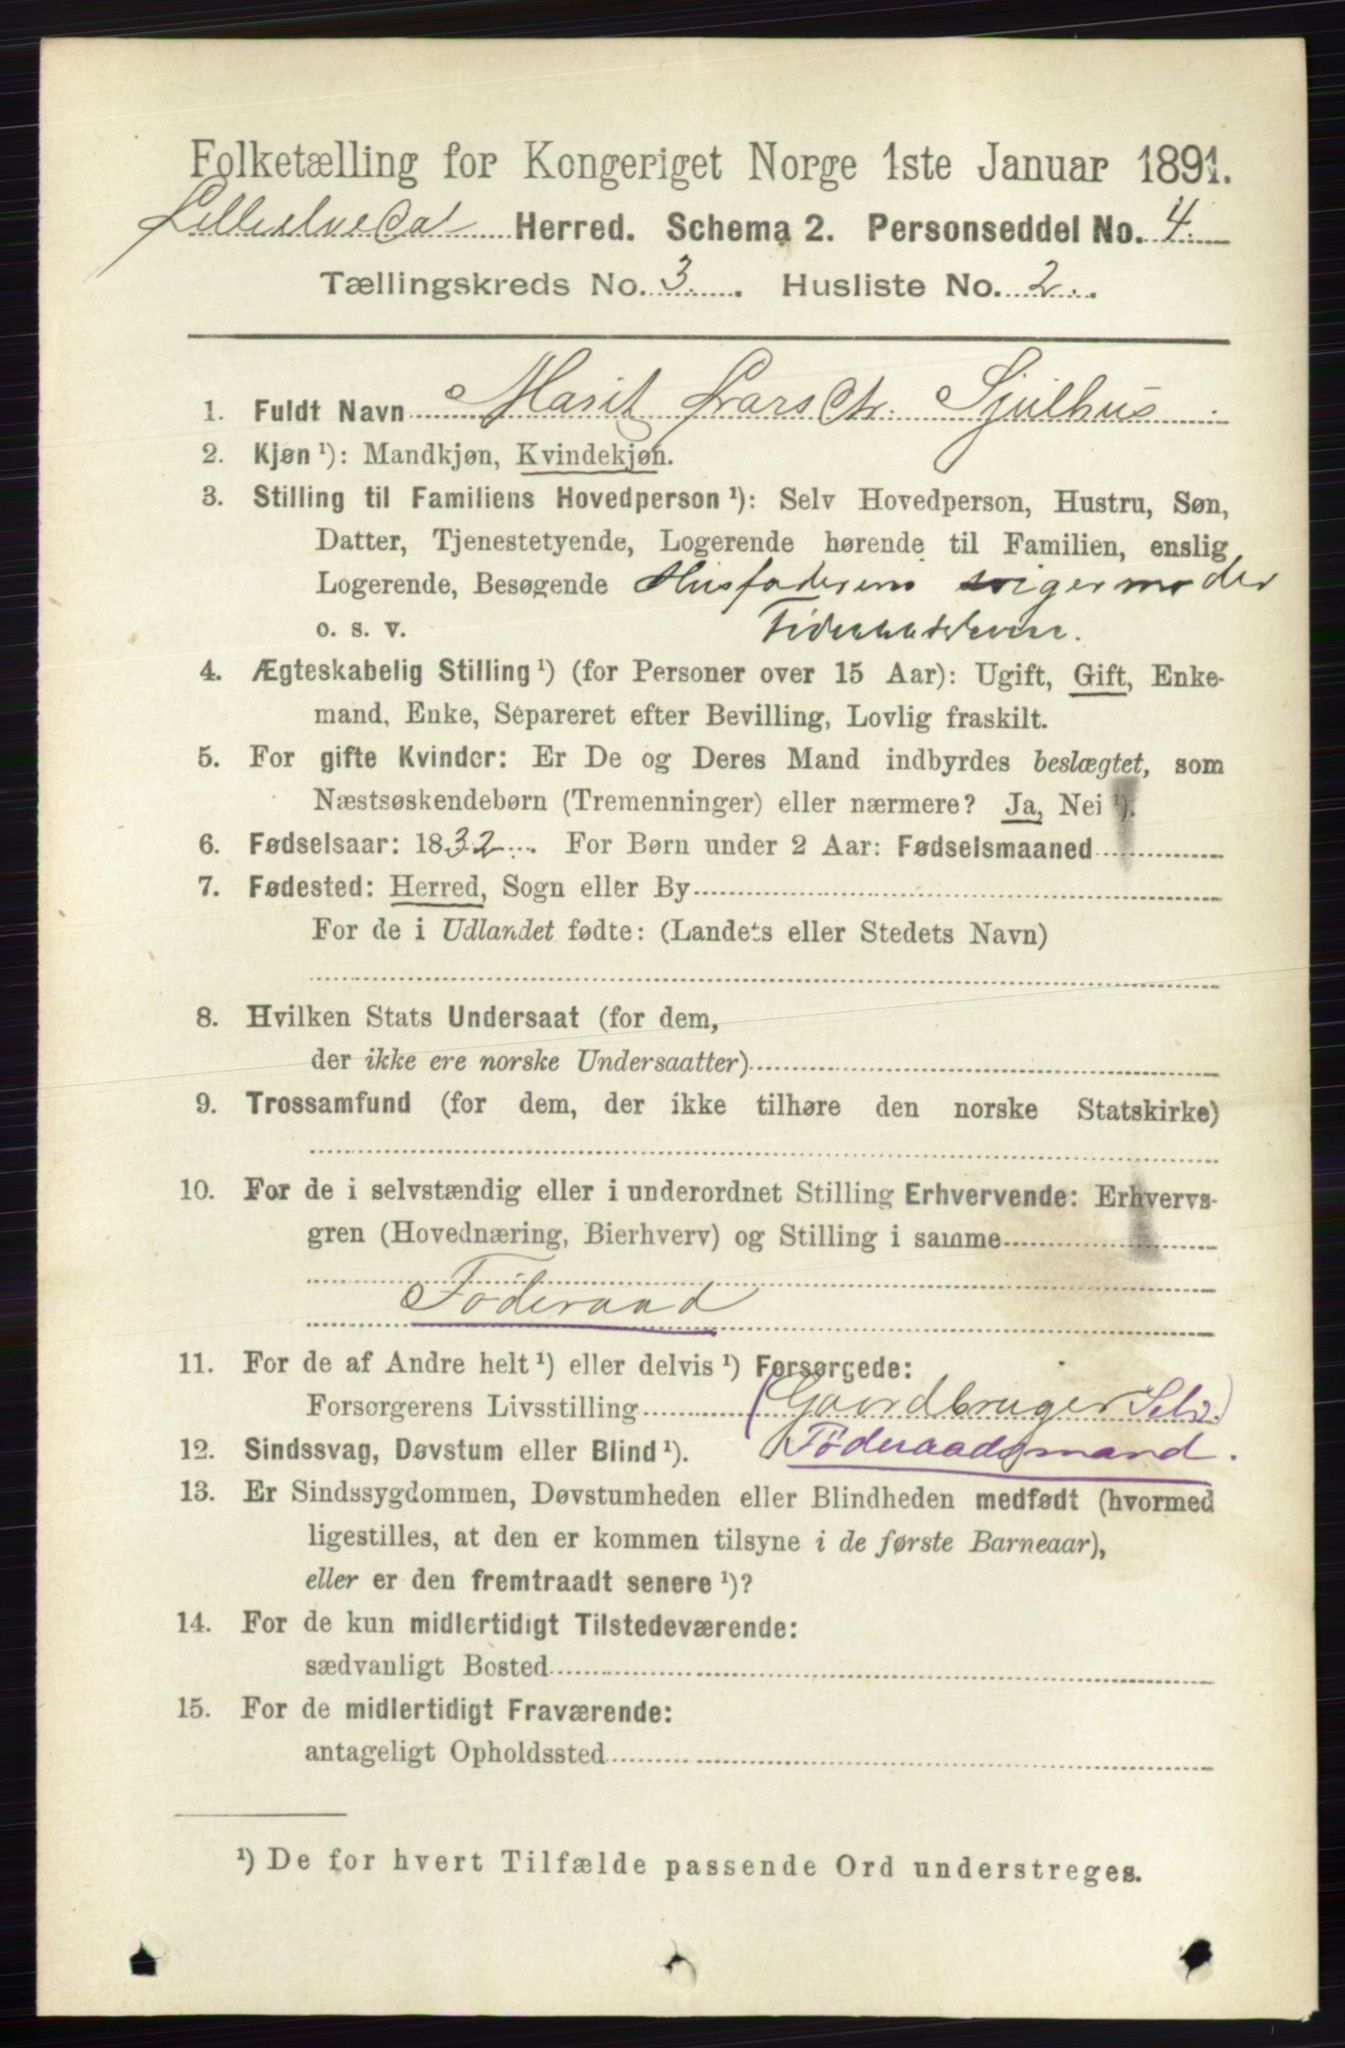 Folketælling for Kongeriget Norge 1ste Januar 1891.
Lilleelvedal Herred. Schema 2. Personseddel No. 4
Tællingskreds No. 3. Husliste No. 2.
1. Fuldt Navn Marit Larsdtr. Sjulhus
2. Kjøn ¹): Mandkjøn, Kvindekjøn.
3. Stilling til Familiens Hovedperson ¹): Selv Hovedperson, Hustru, Søn,
Datter, Tjenestetyende, Logerende hørende til Familien, enslig
Logerende, Besøgende Husfaderens svigermoder
o. s. v.
4. Ægteskabelig Stilling ¹) (for Personer over 15 Aar): Ugift, Gift, Enke-
mand, Enke, Separeret efter Bevilling, Lovlig fraskilt.
5. For gifte Kvinder: Er De og Deres Mand indbyrdes beslægtet, som
Næstsøskendebørn (Tremenninger) eller nærmere? Ja, Nei ¹).
6. Fødselsaar: 1832. For Børn under 2 Aar: Fødselsmaaned
7. Fødested: Herred, Sogn eller By
For de i Udlandet fødte: (Landets eller Stedets Navn)
8. Hvilken Stats Undersaat (for dem,
der ikke ere norske Undersaatter)
9. Trossamfund (for dem, der ikke tilhøre den norske Statskirke)
10. For de i selvstændig eller i underordnet Stilling Erhvervende: Erhvervs-
gren (Hovednæring, Bierhverv) og Stilling i samme
Föderaad
11. For de af Andre helt ¹) eller delvis ¹) Forsørgede:
Forsørgerens Livsstilling (Gaardbruger Selv.)
12. Sindssvag, Døvstum eller Blind ¹). Föderaadsmand.
13. Er Sindssygdommen, Døvstumheden eller Blindheden medfødt (hvormed
ligestilles, at den er kommen tilsyne i de første Barneaar),
eller er den fremtraadt senere ¹)?
14. For de kun midlertidigt Tilstedeværende:
sædvanligt Bosted
15. For de midlertidigt Fraværende:
antageligt Opholdssted
¹) De for hvert Tilfælde passende Ord understreges.